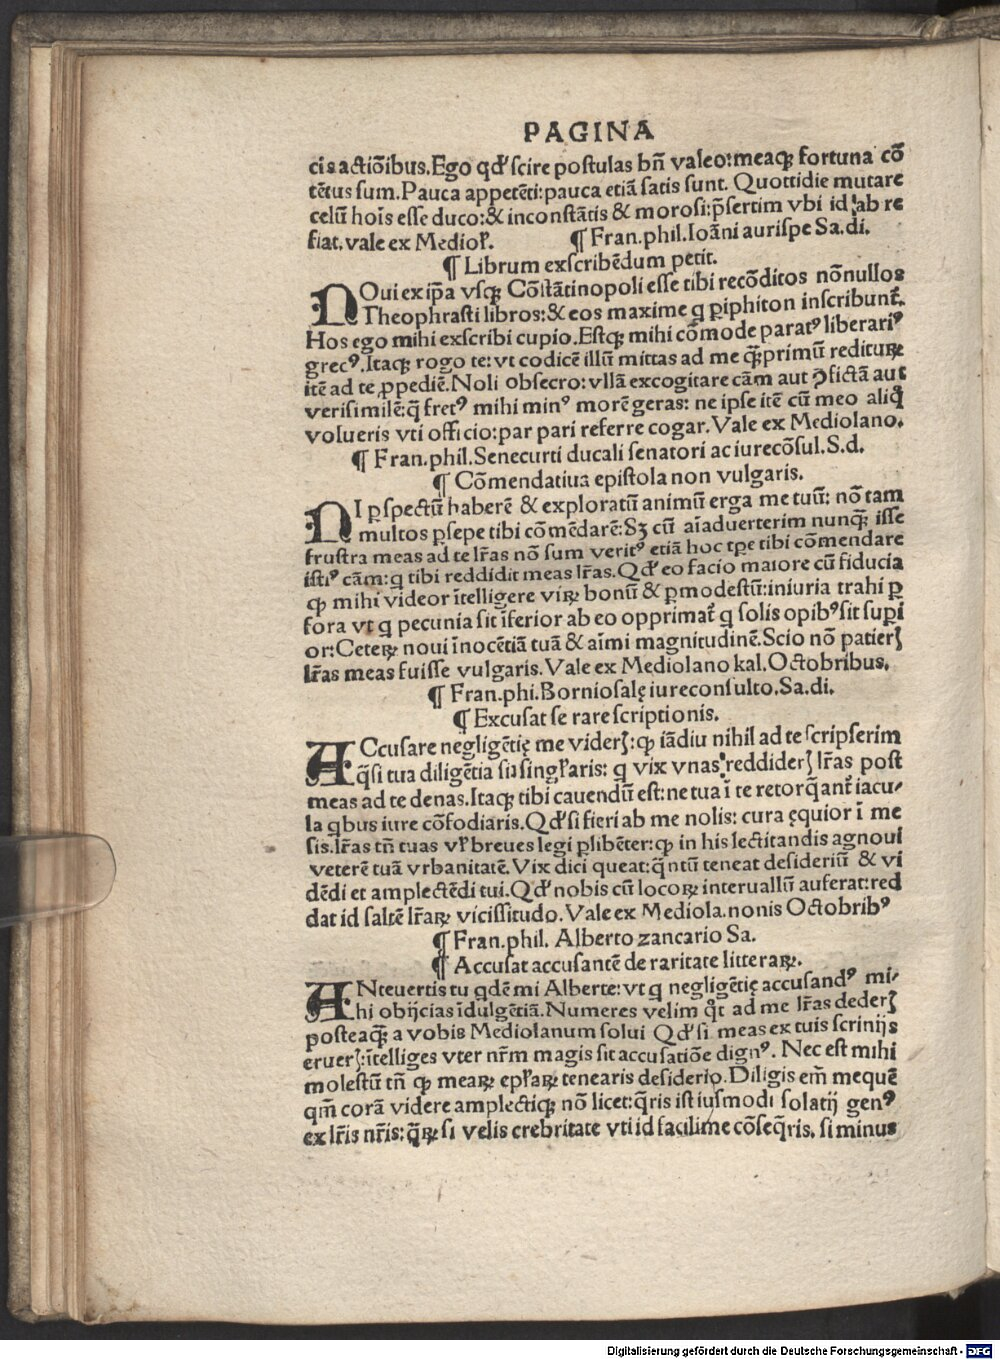 PAGINA
cis actiõibus. Ego qd' scire postulas bñ valeo: meaqȝ fortuna cõ
tẽtus sum. Pauca appetẽti: pauca etiã satis sunt. Quottidie mutare
celũ hoĩs esse duco: & inconstãtis & morosi: p̃sertim vbi id ab re
fiat. vale ex Medioł. ¶ Fran. phil. Ioãni aurispe Sa. di.
¶ Librum exscribẽdum petit.
NOui ex ip̃a vsqȝ Cõstãtinopoli esse tibi recõditos nõnullos
Theophrasti libros: & eos maxime q ꝑiphiton inscribunt̃.
Hos ego mihi exscribi cupio. Estqȝ mihi cõmode paratꝰ librariꝰ
grecꝰ. Itaqȝ rogo te: vt codicẽ illũ mittas ad me qȝ̃primũ rediturꝝ
itẽ ad te ꝓpediẽ. Noli obsecro: vllã excogitare cãm aut ꝯfictã aut
verisimilẽ: q̃ fretꝰ mihi minꝰ morẽ geras: ne ipse itẽ cũ meo aliq̃
volueris vti officio: par pari referre cogar. Vale ex Mediolano.
¶ Fran. phil. Senecurti ducali senatori ac iurecõsul. S. d.
¶ Cõmendatiua epistola non vulgaris.
NI ꝑspectũ haberẽ & exploratũ animũ erga me tuũ: nõ tam
multos ꝑsepe tibi cõmẽdarẽ: Sȝ cũ aĩaduerterim nunqȝ̃ isse
frustra meas ad te lr̃as nõ sum veritꝰ etiã hoc tꝑe tibi cõmendare
istiꝰ cãm: q tibi reddidit meas lr̃as. Qd' eo facio maiore cũ fiducia
qꝫ mihi videor ĩtelligere virꝝ bonũ & ꝑmodestũ: iniuria trahi ꝑ
fora vt q pecunia sit ĩferior ab eo opprimat̃ q solis opibꝰ sit supi
or: Ceterꝝ noui ĩnocẽtiã tuã & aĩmi magnitudinẽ. Scio nõ patierꝭ
lr̃as meas fuisse vulgaris. Vale ex Mediolano kal. Octobribus.
¶ Fran. phi. Borniosalę iureconsulto. Sa. di.
¶ Excusat se rare scriptionis.
ACcusare negligẽtię me viderꝭ: qꝫ iãdiu nihil ad te scripserim
q̃si tua diligẽtia sit singl'aris: q vix vnas reddiderꝭ lr̃as post
meas ad te denas. Itaqȝ tibi cauendũ est: ne tua ĩ te retorq̃ant̃ iacu-
la qbus iure cõfodiaris. Qd' si fieri ab me nolis: cura ęquior ĩ me
sis. lr̃as tñ tuas vl' breues legi ꝑlibẽter: qꝫ in his lectitandis agnoui
veterẽ tuã vrbanitatẽ. Vix dici queat: q̃ntũ teneat desideriũ & vi
dẽdi et amplectẽdi tui. Qd' nobis cũ locoꝝ interuallũ auferat: red
dat id saltẽ lr̃aꝝ vicissitudo. Vale ex Mediola. nonis Octobribꝰ
¶ Fran. phil. Alberto zancario Sa.
¶ Accusat accusantẽ de raritate litteraꝝ.
ANteuertis tu qdẽ mi Alberte: vt q negligẽtię accusandꝰ mi-
hi obijcias ĩdulgẽtiã. Numeres velim q̊t ad me lr̃as dederꝭ
posteaqȝ̃ a vobis Mediolanum solui Qd' si meas ex tuis scrinijs
eruerꝭ: ĩtelliges vter nr̃m magis sit accusatiõe dignꝰ. Nec est mihi
molestũ tñ qꝫ meaꝝ epl'aꝝ tenearis desiderio. Diligis em̃ mequẽ
qm̃ corã videre amplectiqȝ nõ licet: q̃ris istiusmodi solatij genꝰ
ex lr̃is nr̃is: q̃ꝝ si velis crebritate vti id facilime cõseq̃ris. si minus
Digitalisierung gefördert durch die Deutsche Forschungsgemeinschaft - DFG